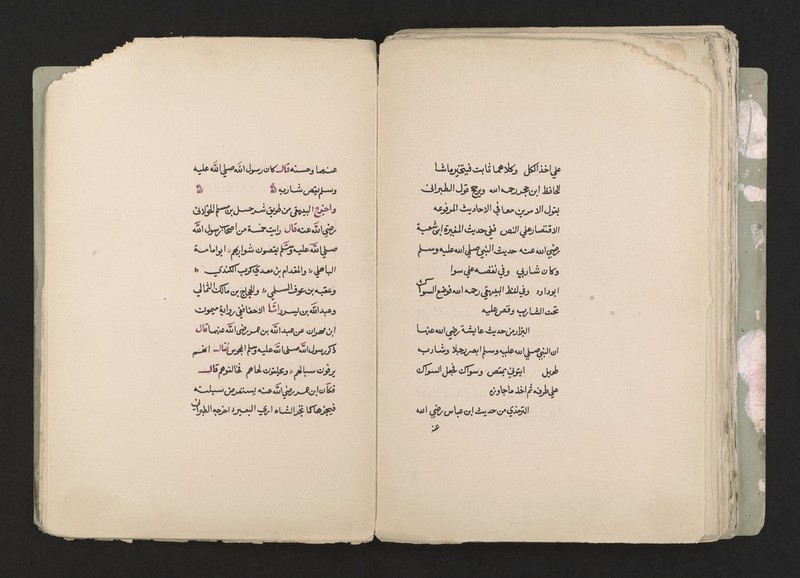 على اخذ الكل وكلاهما ثابت فيتخير ما شا
الحافظ ابن حجر رحمه الله ويرجح قول الطبرانى
بقول الامرين معا في الاحاديث المرفوعه
الاقتصار على النص ففى حديث المغيرة ابن شعبة
رضى الله عنه حديث النبي صلى الله عليه وسلم
وكان شاربي وفي فقصه على سوا
ابو داود وفي لفظ البيهقي رحمه الله فوضع السواك
تحت الشارب وقص عليه
البزار من حديث عايشة رضي الله عنها
ان النبي صلى الله عليه وسلم ابصر رجلا وشاربه
طويل ايتوني بمقص وسواك فجعل السواك
على طرفه ثم اخذ ما جاوزه
الترمذي من حديث ابن عباس رضي الله
عنه
عنهما وحسنه قال كان رسول الله صلي الله عليه
وسلم يقص شاربه
واخرج البيهقي من طريق شرحبيل بن مسلم الخولانى
رضي الله عنه قال رايت خمسة من اصحاب رسول الله
صلي الله عليه وسلم يقصون شواربهم ابو امامة
الباهلى والمقدام بن معدي كرب الكندي
وعتبه بن عوف السلمي والحجاج بن مالك الثمالي
وعبد الله بن بسر اما الاحفا ففي رواية ميمون
ابن مهران عن عبد الله بن عمر رضي الله عنهما قال
ذكر رسول الله صلي الله عليه وسلم المجوس فقال انهم
يرفون سبالهم ويحلقون لحاهم فخالفوهم قال
فكان ابن عمر رضي الله عنه يستعرض سبلته
فيجزها كما تجز الشاه او البعير اخرجه الطبراني